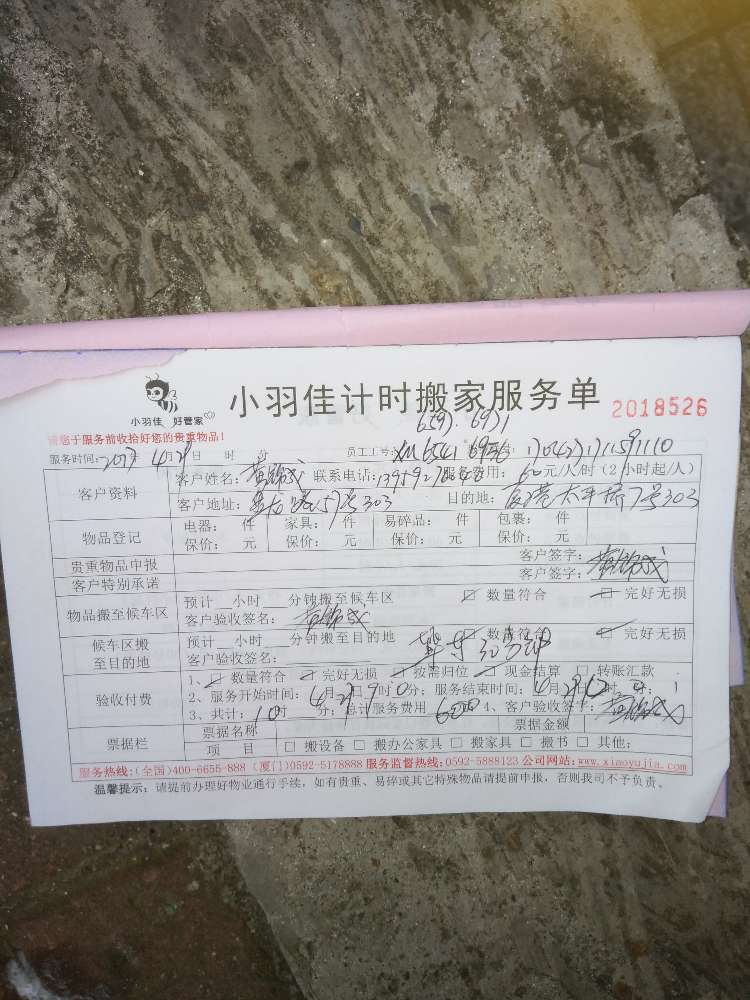 小羽佳 好管家
小羽佳计时搬家服务单
2018526
请您于服务前收拾好您的贵重物品!
6593. 6931
服务时间: 2017 4月29日 时 分 员工工号: XM6541
客户资料
客户姓名: 联系电话: 服务费用: 60元/人/时(2小时起/人)
客户地址: 57号303 目的地: 太平桥7号303
物品登记
电器: 件 家具: 件 易碎品: 件 包裹: 件
保价: 元 保价: 元 保价: 元 保价: 元
贵重物品申报 客户签字:
客户特别承诺 客户签字:
物品搬至候车区
预计 小时 分钟搬至候车区 数量符合 完好无损
客户验收签名:
候车区搬至目的地
预计 小时 分钟搬至目的地 数量符合 完好无损
客户验收签名:
验收付费
1、 数量符合 完好无损 按需归位 现金结算 转账汇款
2、服务开始时间: 4月29日9时0分; 服务结束时间: 4月29日12时 分;
3、共计: 10时 分; 总计服务费用 600 4、客户验收签字:
票据栏
票据名称 票据金额
项 目 搬设备 搬办公家具 搬家具 搬书 其他:
服务热线:(全国)400-6655-888 (厦门)0592-5178888 服务监督热线:0592-5888123 公司网站:www.xiaoyujia.com
温馨提示: 请提前办理好物业通行手续, 如有贵重、易碎或其它特殊物品请提前申报, 否则我司不予负责。